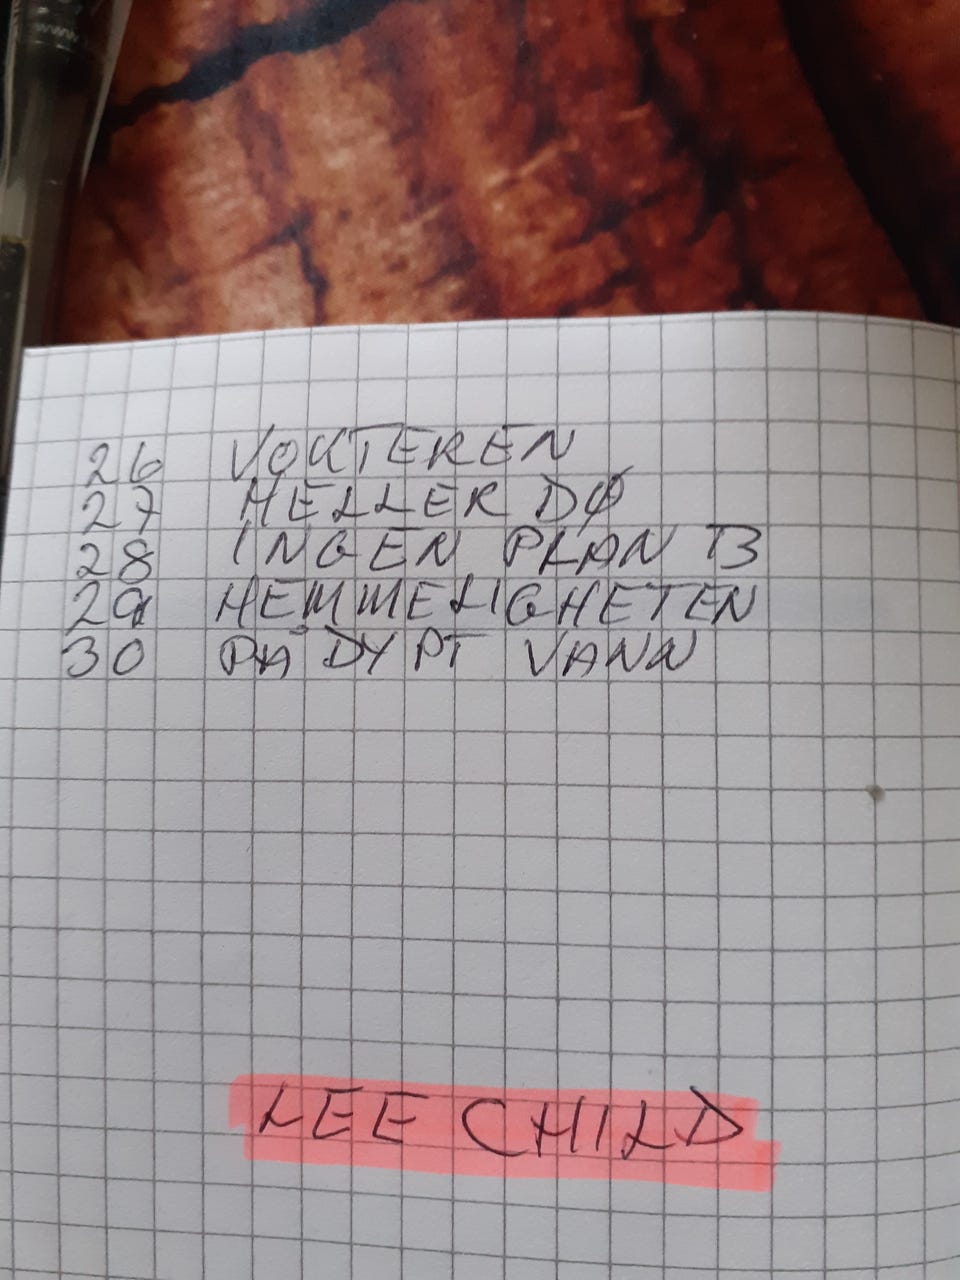 26 VOKTEREN
27 HELLER DØ
28 INGEN PLAN B
29 HEMMELIGHETEN
30 PÅ DYPT VANN
LEE CHILD